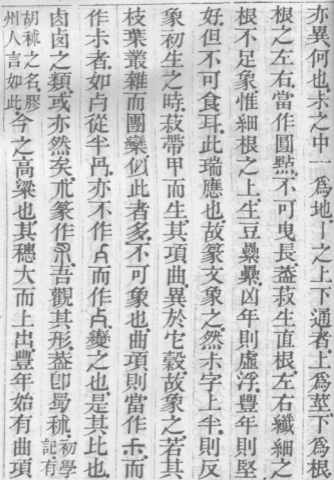 亦異何也尗之中一爲地丨之上下通者上爲莖下爲根
根之左右當作圓㸃不可曳長葢菽生直根左右纖細之
根不足象惟細根之上生豆纍纍凶年則虛浮豐年則堅
好但不可食耳此瑞應也故篆文象之然尗字上半則反
象初生之時菽帶甲而生其項曲異於它穀故象之若其
枝葉叢雜而團欒似此者多不可象也曲項則當作而
作尗者如从半冎亦不作而作變之也是其比也
卤卤之類或亦然矣朮篆作吾觀其形葢卽蜀秫初學記有
胡秫之名膠州人言如此今之高粱也其穗大而上出豐年始有曲項